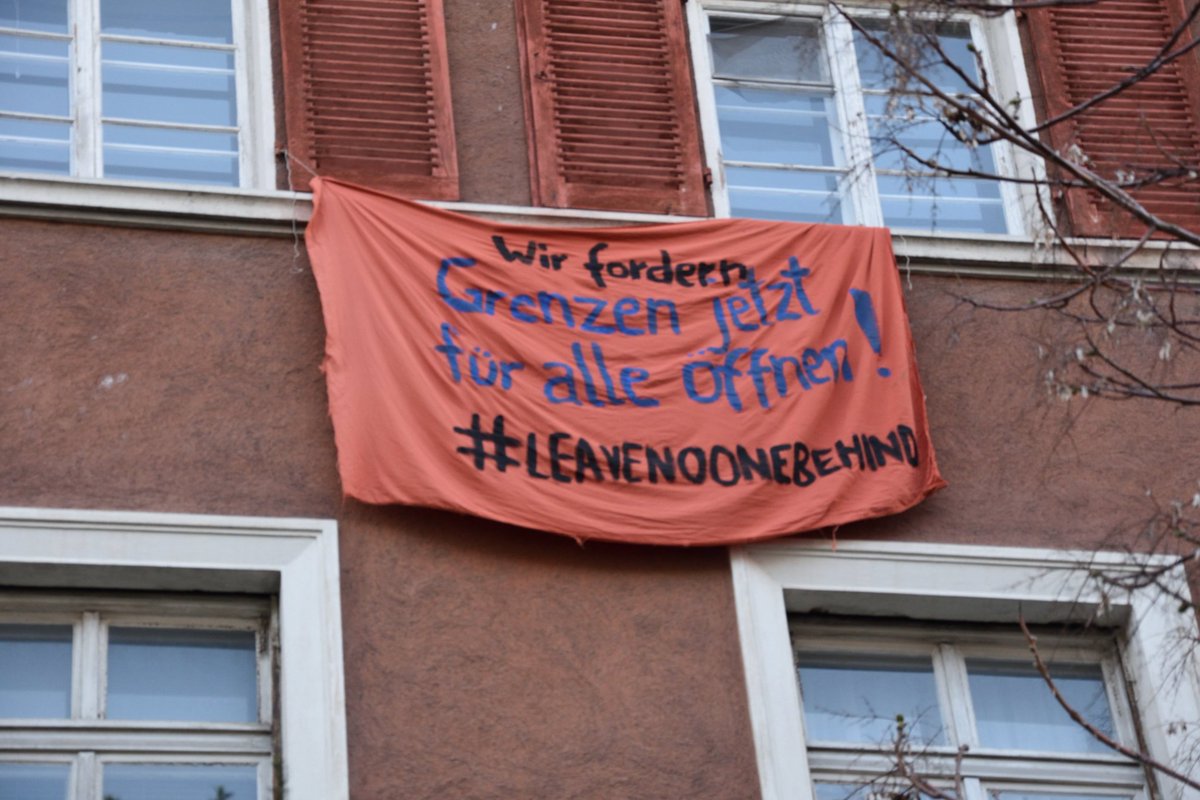 Wir fordern
Grenzen jetzt
für alle öffnen!
#LEAVENOONEBEHIND